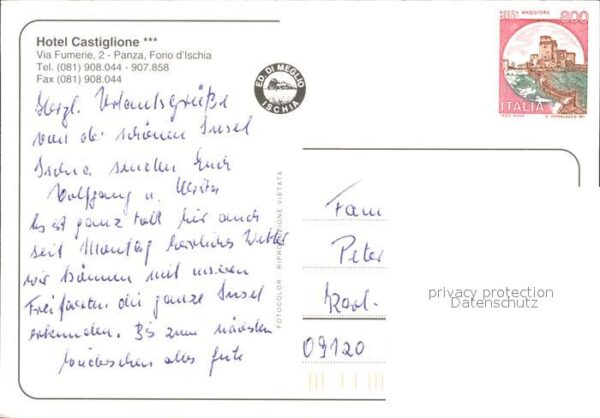 Hotel Castiglione ***
Via Fumerie, 2 - Panza, Forio d'Ischia
Tel. (081) 908.044 - 907.858
Fax (081) 908.044
ED. DI MEGLIO
ISCHIA
ROCCA MAGGIORE
ASSISI
800
ITALIA
Herzl. Urlaubsgrüße
von der schönen Insel
Ischia senden Euch
Wolfgang u.
Es ist ganz toll hier auch
seit Montag herrliches Wetter
wir können mit unseren
Freifahrten die ganze Insel
erkunden. Bis zum nächsten
alles gute
FOTOCOLOR - RIPRODUZIONE VIETATA
Fam
Peter
Karl-
09120
privacy protection
Datenschutz